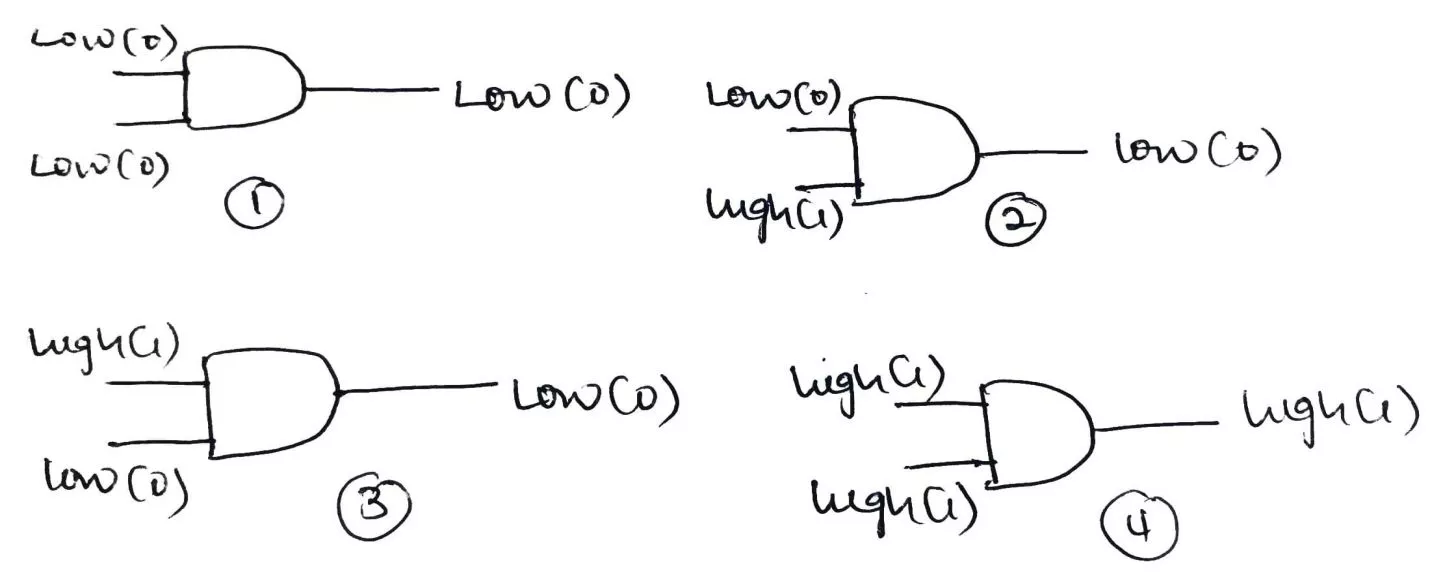 Low(0)
Low(0)
Low(0)
1
Low(0)
high(1)
low(0)
2
high(1)
low(0)
Low(0)
3
high(1)
high(1)
high(1)
4